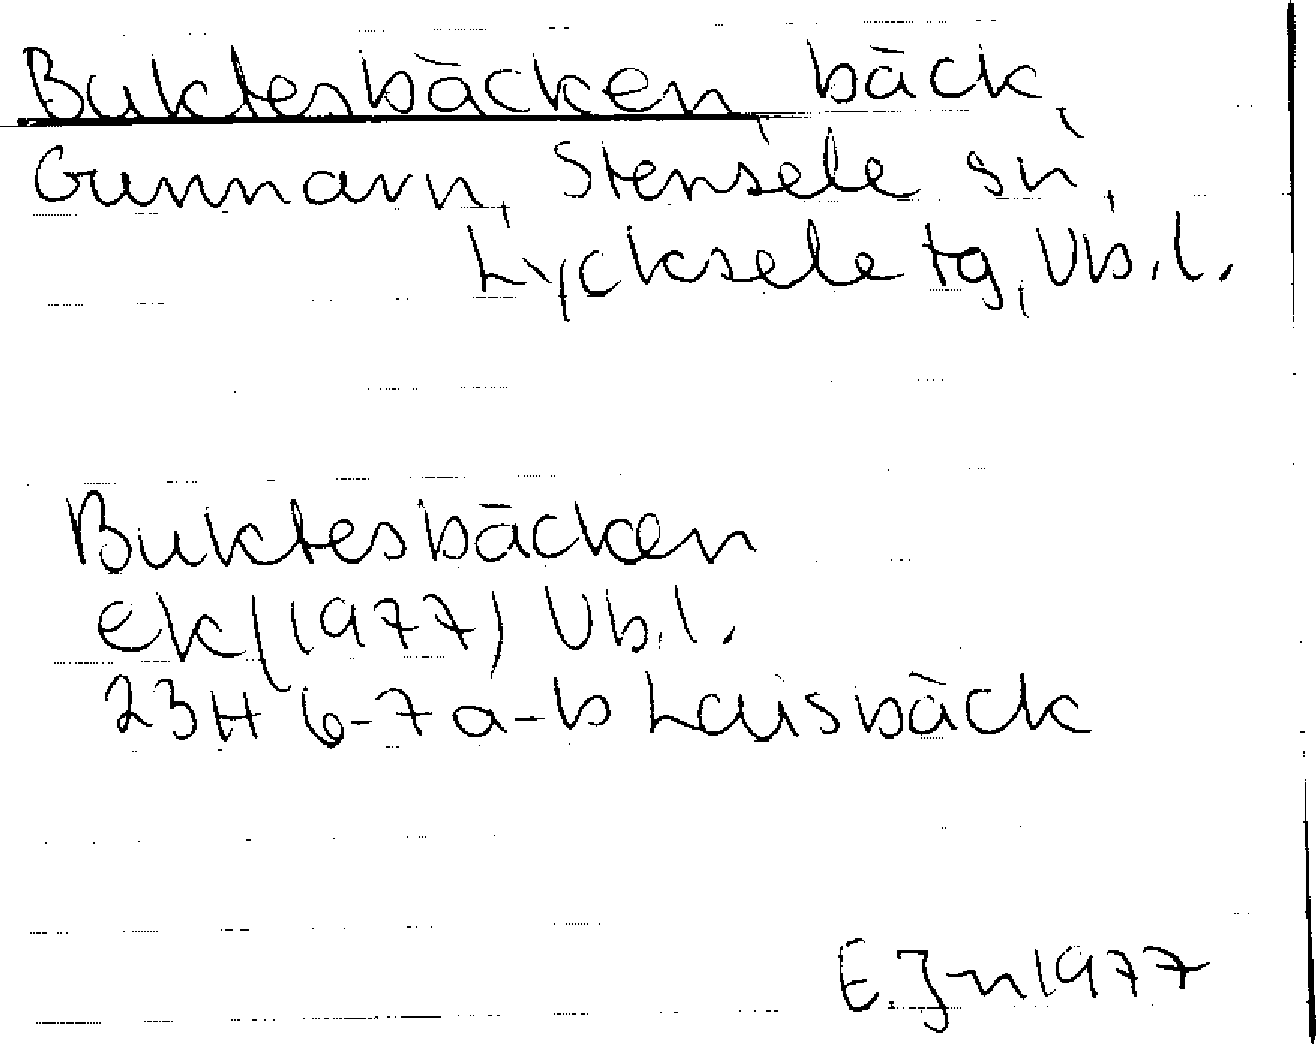 Buktesbäcken, bäck,
Gunnarn, Stensele sn,
Lycksele tg, Vb.l.
Buktesbäcken
ek (1977) Vb.l.
23H 6-7 a-b Laisbäck
E.Jn 1977